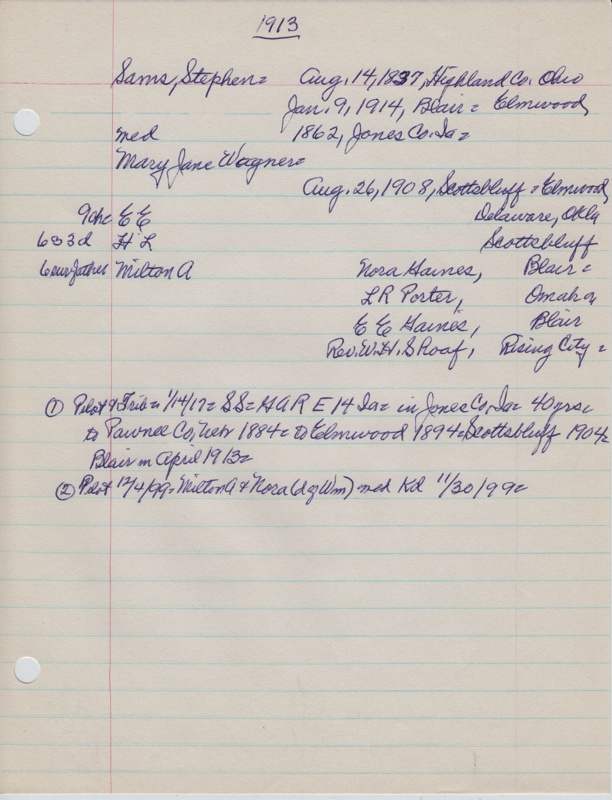 1913
Sams, Stephen= Aug. 14, 1837, Highland Co. Ohio
Jan. 9, 1914, Blair = Elmwood,
med 1862, Jones Co. Ia=
Mary Jane Wagner=
Aug. 26, 1908, Scottsbluff = Elmwood,
9chc E E Delaware, Okla
6s3d H L Scottsbluff
6 surv father Milton A Nora Haines, Blair =
L R Porter, Omaha
E E Haines, Blair
Rev. W.H. Roaf, Rising City =
① Pilot & Trib = 1/14/17= SS= GAR E 14 Ia= in Jones Co. Ia= 40 yrs=
to Pawnee Co, Nebr 1884= to Elmwood 1894= Scottsbluff 1904=
Blair in April 1913=
② Pilot 12/4/99= Milton A & Nora (d of Wm) med Kd 11/30/99=